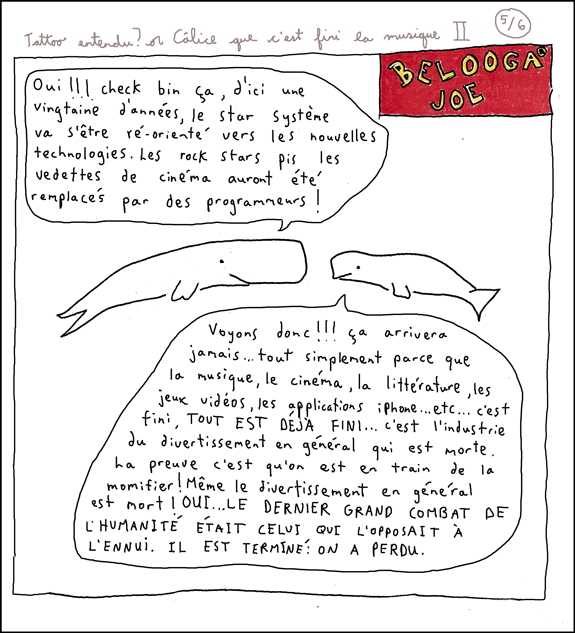 Tattoo entendu? or Câlice que c'est fini la musique II
5/6
BELOOGA
JOE
Oui!!! check bin ça, d'ici une
vingtaine d'années, le star système
va s'être ré-orienté vers les nouvelles
technologies. Les rock stars pis les
vedettes de cinéma auront été
remplacés par des programmeurs!
Voyons donc!!! ça arrivera
jamais... tout simplement parce que
la musique, le cinéma, la littérature, les
jeux vidéos, les applications iphone... etc... c'est
fini, TOUT EST DÉJÀ FINI... c'est l'industrie
du divertissement en général qui est morte.
La preuve c'est qu'on est en train de la
momifier! Même le divertissement en général
est mort! OUI... LE DERNIER GRAND COMBAT DE
L'HUMANITÉ ÉTAIT CELUI QUI L'OPPOSAIT À
L'ENNUI. IL EST TERMINÉ: ON A PERDU.